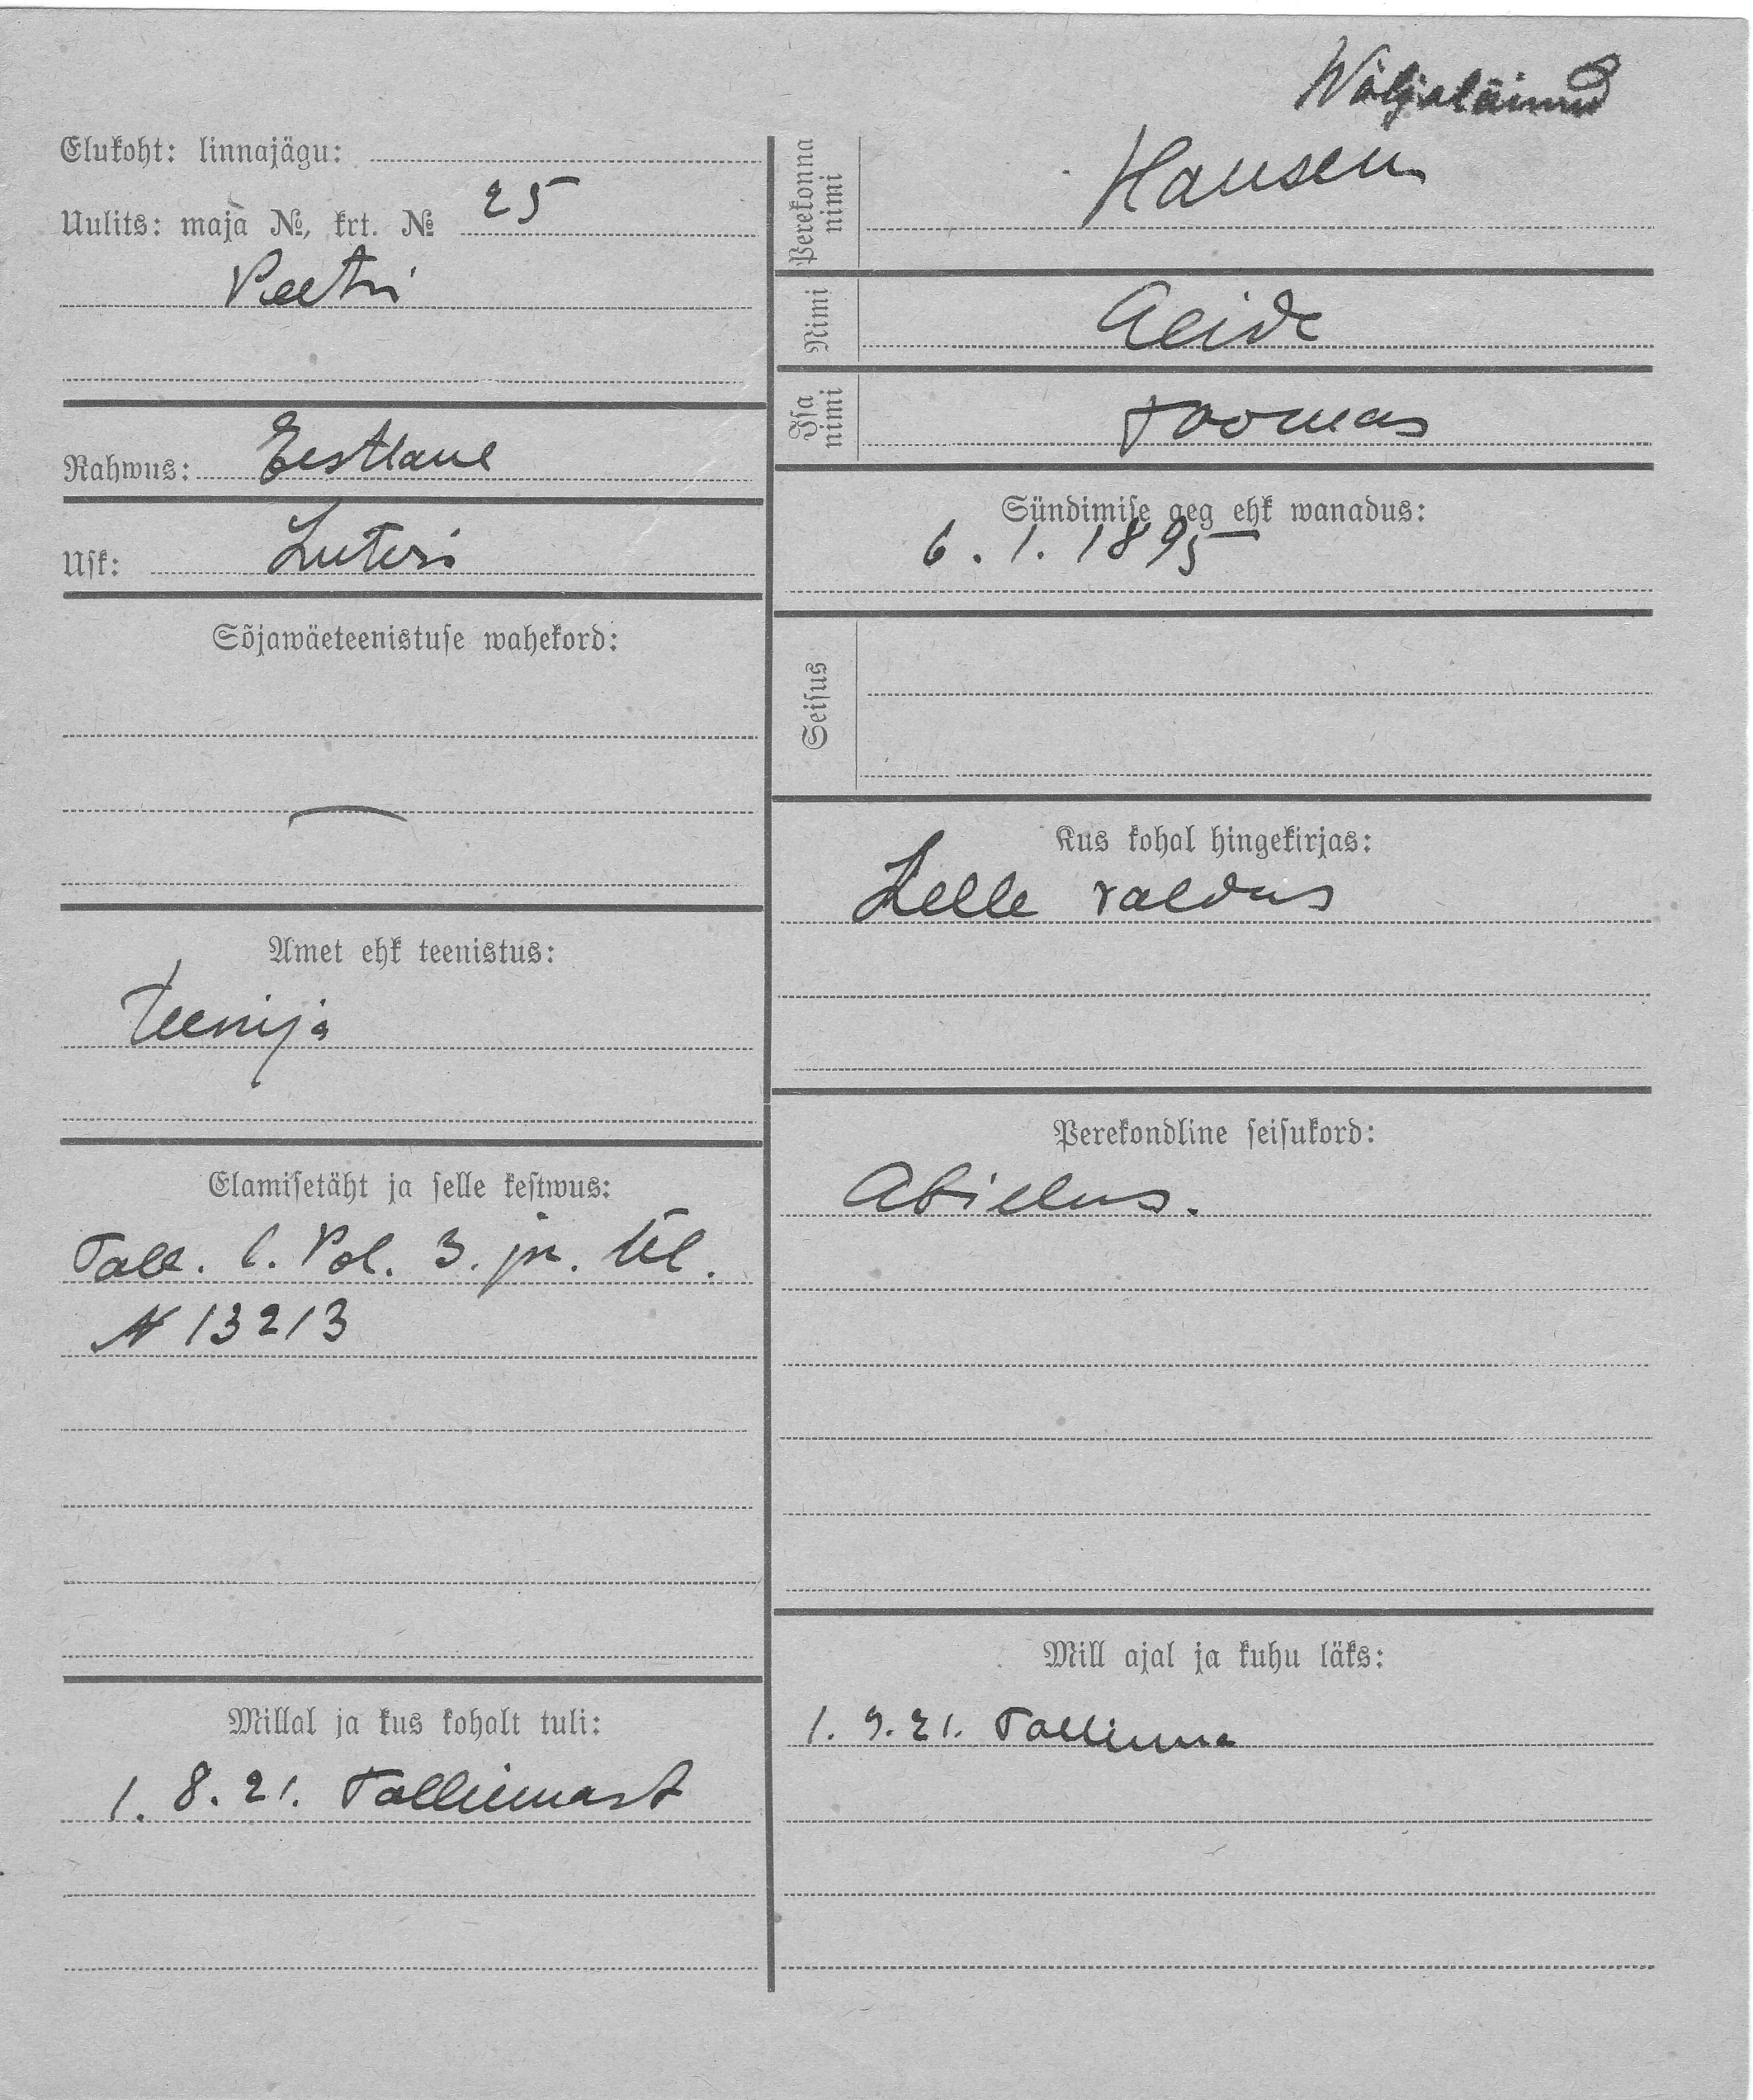 Wäljaläinud
Elukoht: linnajägu:
Uulits: maja №, krt. № 25
Peetri
Rahwus: Eestlane
Usk: Luteri
Sõjawäeteenistuse wahekord:
Amet ehk teenistus:
Teenija
Elamisetäht ja selle kestwus:
Tall. l. Pol. 3. jsk. ül.
N 13213
Millal ja kus kohalt tuli:
1. 8. 21. Tallinnast
Perekonna nimi
Hansen
Nimi
Leida
Isa nimi
Toomas
Sündimise aeg ehk wanadus:
6. 1. 1895
Seisus
Kus kohal hingekirjas:
Lelle valdus
Perekondline seisukord:
Abielus.
Mill ajal ja kuhu läks:
1. 9. 21. Tallinna